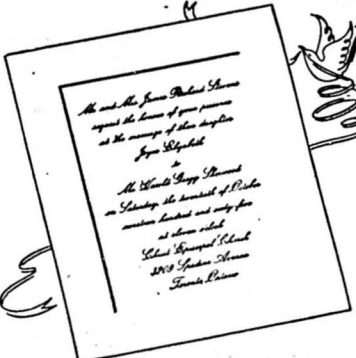 Mr. and Mrs. James Richard Stevens
request the honour of your presence
at the marriage of their daughter
Joyce Elizabeth
to
Mr. Harold Gregg
on Saturday, the twentieth of October
nineteen hundred and sixty five
at eleven o'clock
Episcopal Church
Avenue
Toronto